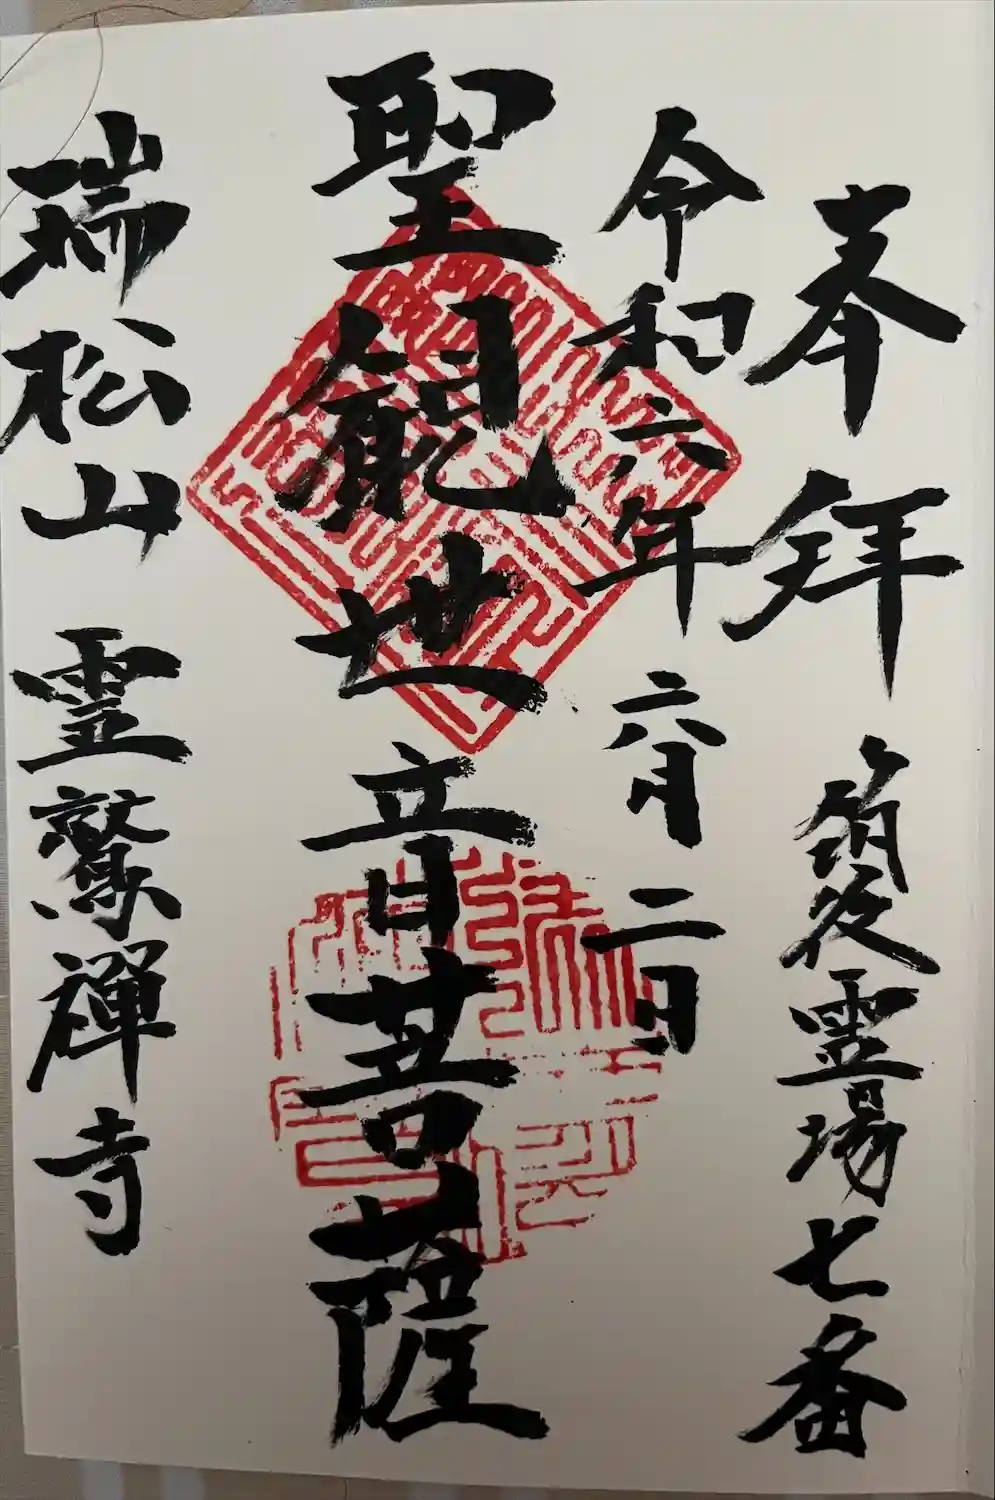 奉拝 筑後霊場七番
令和六年六月二日
聖観世音菩薩
瑞松山 霊鷲禪寺